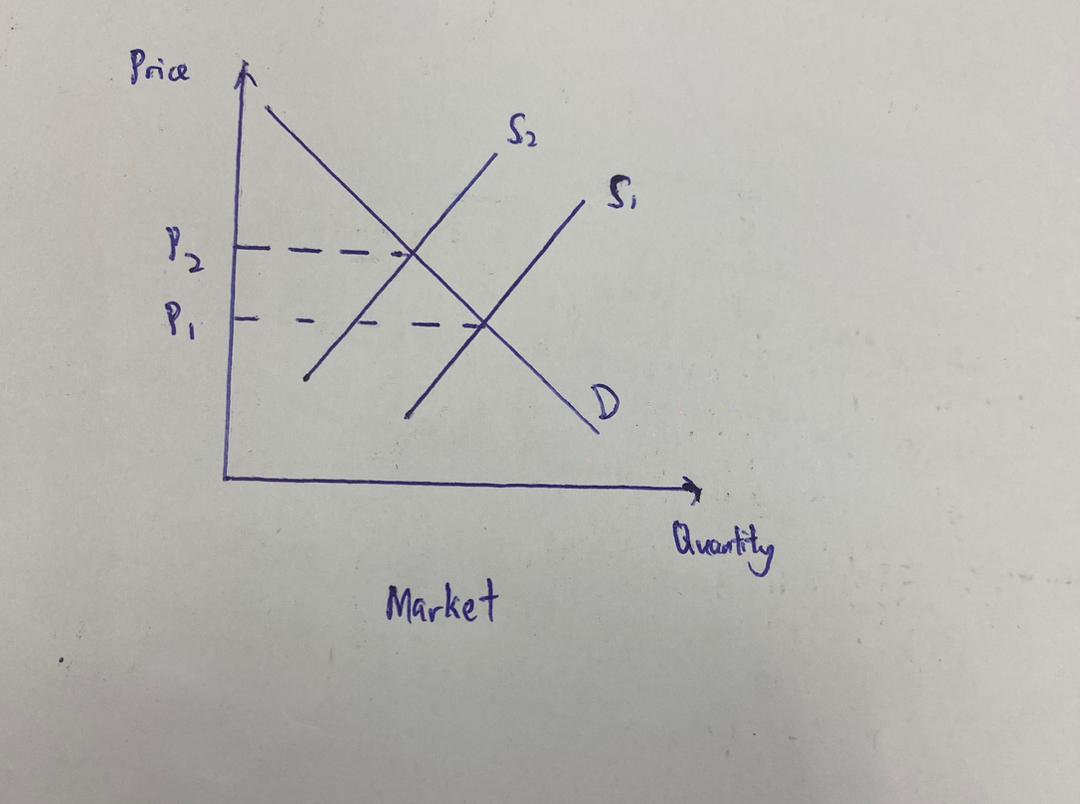 Price
S₂
S₁
P₂
P₁
D
Quantity
Market